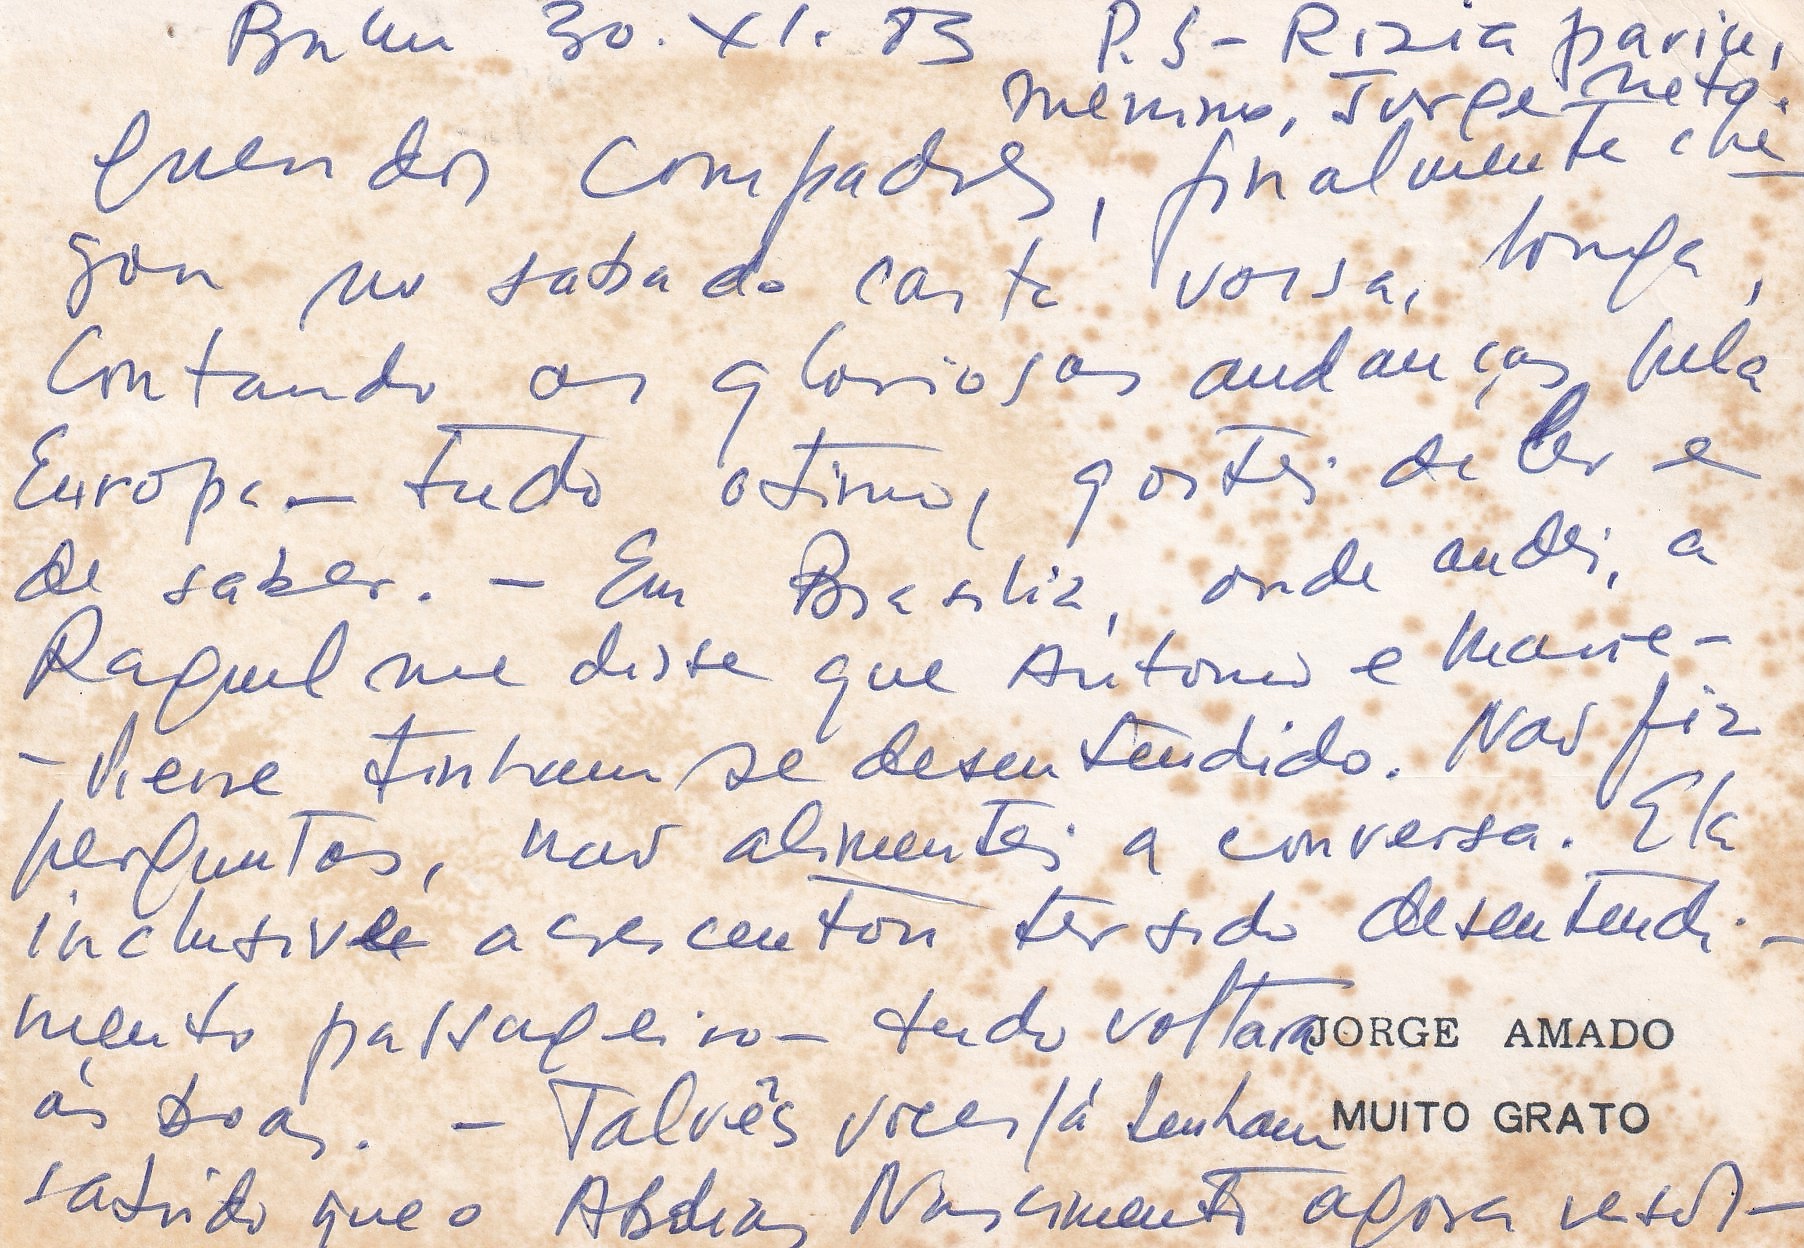 Bahia 30. XI. 83 P.S – Rízia pariu,
menino, Jorge Neto.
Queridos Compadres, finalmente che
gou no sabado carta vossa, longa,
contando as gloriosas andanças pela
Europa – tudo otimo, gostei de ler e
de saber. – Em Brasilia, onde andei, a
Raquel me disse que Antonio e Marie-
-Pierre tinham se desentendido. Nao fiz
perguntas, nao alimentei a conversa. Ela
inclusive acrescentou ter sido desentendi-
mento passageiro – tudo voltara
às boas. – Talvês voces já tenham
sabido que o Abdias Nascimento agora resol-
JORGE AMADO
MUITO GRATO